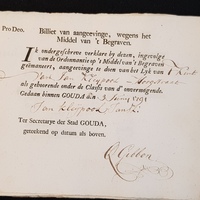 Pro Deo. Billiet van aangeevinge, wegens het
Middel van 't Begraven.
IK ondergeschreve verklare by dezen, ingevolge
van de Ordonnantie op 't Middel van 't Begraven
geëmaneert, aangeevinge te dien van het Lyk van 't Kint
Van Jan
als gehoorende onder de Classis van d' onvermogende.
Gedaan binnen GOUDA den 3 Juny 1791
Jan
Ter Secretarye der Stad GOUDA,
geteekend op datum als boven.